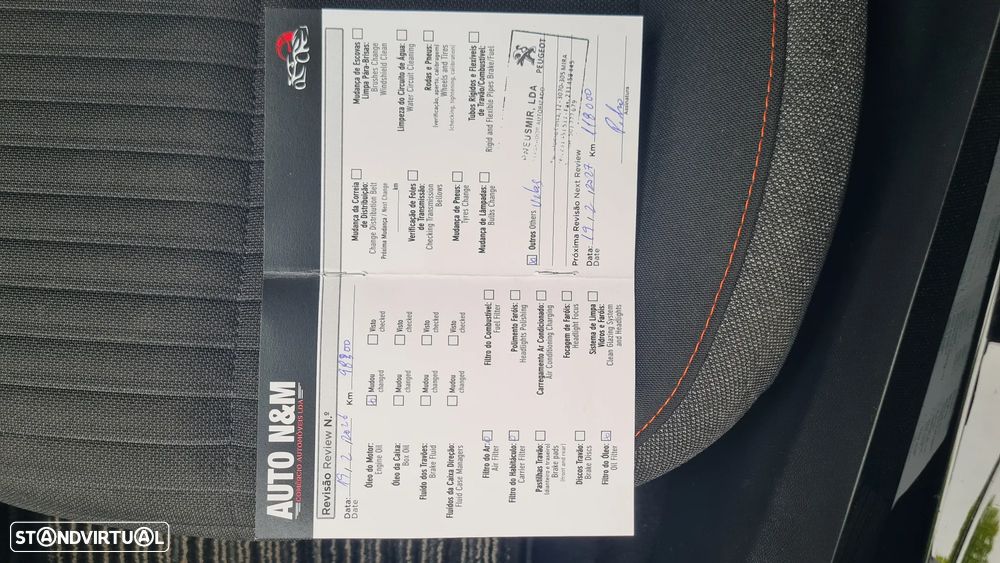 AUTO N&M
COMÉRCIO AUTOMÓVEIS LDA
Revisão Review N.º
Data: 19, 2, 2026 Km 98800
Date
Óleo do Motor: Mudou Visto
Engine Oil changed checked
Óleo da Caixa: Mudou Visto
Box Oil changed checked
Fluido dos Travões: Mudou Visto
Brake Fluid changed checked
Fluidos da Caixa Direção: Mudou Visto
Fluid Case Managers changed checked
Filtro do Ar: Filtro do Combustível:
Air Filter Fuel Filter
Filtro do Habitáculo: Polimento Faróis:
Carrier Filter Headlights Polishing
Pastilhas Travão: Carregamento Ar Condicionado:
(dianteiro e traseiro) Air Conditioning Charging
Brake pads
(front and rear)
Discos Travão: Focagem de Faróis:
Brake Discs Headlight Focus
Filtro do Óleo: Sistema de Limpa
Oil Filter Vidros e Faróis:
Clean Glazing System
and Headlights
Mudança da Correia Mudança de Escovas
de Distribuição: Limpa Pára-Brisas:
Change Distribution Belt Brushes Change
Próxima Mudança / Next Change Windshield Clean
km
Limpeza do Circuito de Água:
Water Circuit Cleaning
Verificação de Foles Rodas e Pneus:
de Transmissão: (verificação, aperto, calibragem)
Checking Transmission Wheels and Tires
Bellows (checking, tightening, calibration)
Mudança de Pneus: Tubos Rígidos e Flexíveis
Tyres Change de Travão/Combustível:
Mudança de Lâmpadas: Rigid and Flexible Pipes Brake/Fuel
Bulbs Change
Outros Others Velas
PNEUSMIR, LDA
PEUGEOT
Próxima Revisão Next Review
Data: 19, 2, 2027 Km 118000
Date
Pedro
Assinatura
STANDVIRTUAL